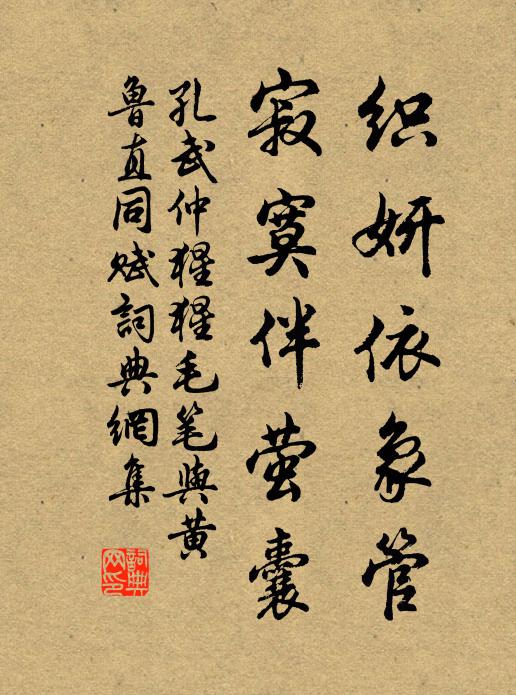 织妍依象管
寂寞伴萤囊
孔武仲猩猩毛笔与黄
鲁直同赋词典網集
詞典
网印